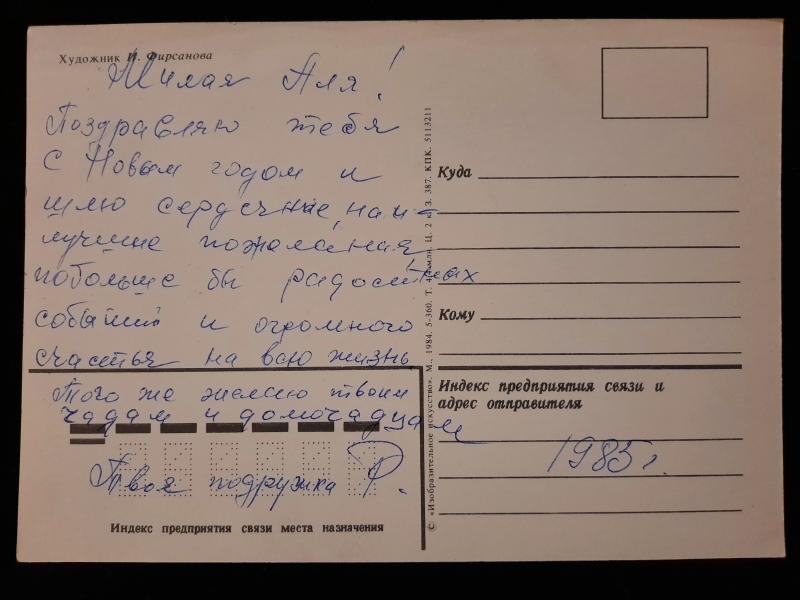 Художник И. Фирсанова
Милая Аля!
Поздравляю тебя
с Новым годом и
шлю сердечные, наи-
лучшие пожелания,
побольше бы радостных
событий и огромного
счастья на всю жизнь.
Того же желаю твоим
чадам и домочадцам
Твоя подружка Р.
Индекс предприятия связи места назначения
© «Изобразительное искусство». М., 1984. 5-360. Т. млн. Ц. 2 к. З. 387. КПК. 5113211
Куда
Кому
Индекс предприятия связи и
адрес отправителя
1985 г.